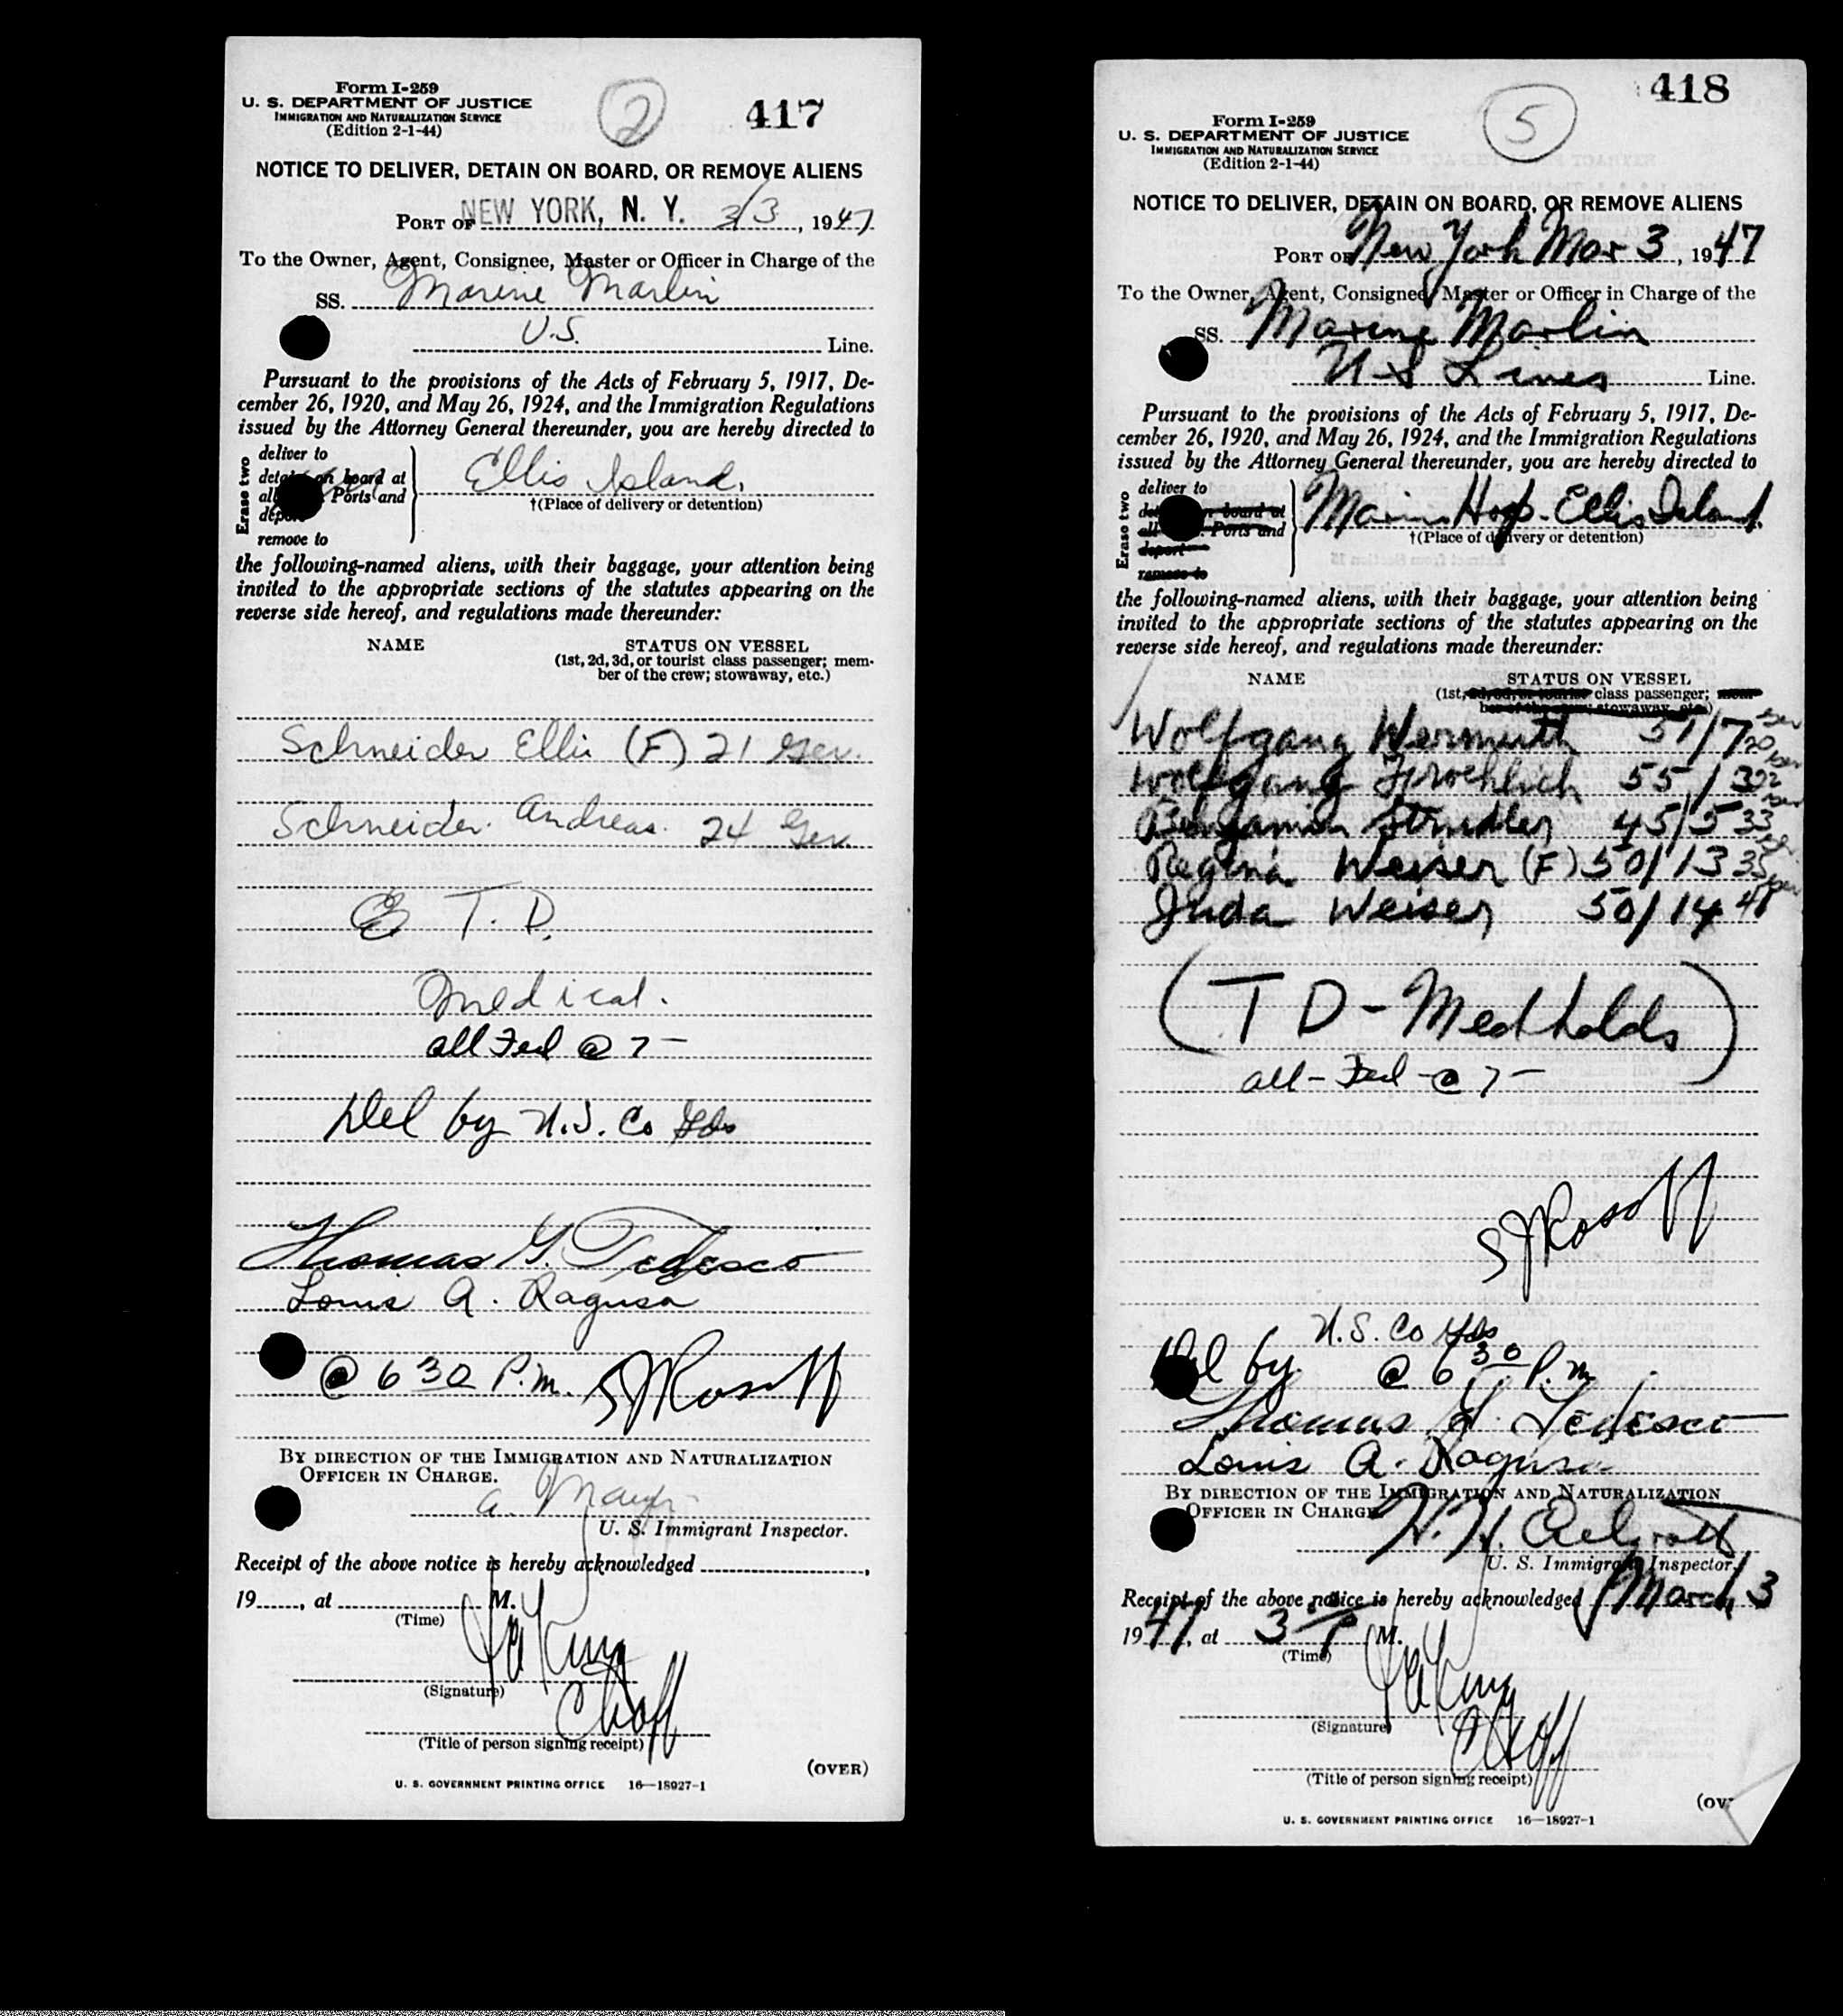 Form I-259
U. S. DEPARTMENT OF JUSTICE
IMMIGRATION AND NATURALIZATION SERVICE
(Edition 2-1-44)
2
417
NOTICE TO DELIVER, DETAIN ON BOARD, OR REMOVE ALIENS
PORT OF NEW YORK, N. Y. 3/3, 1947
To the Owner, Agent, Consignee, Master or Officer in Charge of the
SS. Marine Marlin
U.S. Line.
Pursuant to the provisions of the Acts of February 5, 1917, De-
cember 26, 1920, and May 26, 1924, and the Immigration Regulations
issued by the Attorney General thereunder, you are hereby directed to
Erase two
deliver to
on board at
Ports and
remove to
Ellis Island.
†(Place of delivery or detention)
the following-named aliens, with their baggage, your attention being
invited to the appropriate sections of the statutes appearing on the
reverse side hereof, and regulations made thereunder:
NAME
STATUS ON VESSEL
(1st, 2d, 3d, or tourist class passenger; mem-
ber of the crew; stowaway, etc.)
Schneider Ellis (F) 21 Ger.
Schneider Andreas. 24 Ger.
T. D.
Medical.
all Fed @ 7 —
Del by U.S. Co Gds
Thomas G. Tedesco
Louis A. Ragusa
@ 6 30 P.m. SJRosoff
BY DIRECTION OF THE IMMIGRATION AND NATURALIZATION
OFFICER IN CHARGE.
a.
U. S. Immigrant Inspector.
Receipt of the above notice is hereby acknowledged
19 , at M.
(Time)
(Signature)
(Title of person signing receipt)
(OVER)
U. S. GOVERNMENT PRINTING OFFICE 16—18927-1
418
5
Form I-259
U. S. DEPARTMENT OF JUSTICE
IMMIGRATION AND NATURALIZATION SERVICE
(Edition 2-1-44)
NOTICE TO DELIVER, DETAIN ON BOARD, OR REMOVE ALIENS
PORT OF New York Mar 3, 1947
To the Owner, Agent, Consignee, Master or Officer in Charge of the
SS. Marine Marlin
U S Lines Line.
Pursuant to the provisions of the Acts of February 5, 1917, De-
cember 26, 1920, and May 26, 1924, and the Immigration Regulations
issued by the Attorney General thereunder, you are hereby directed to
Erase two
deliver to
board at
Ports and
deport
remove to
Hosp. Ellis Island
†(Place of delivery or detention)
the following-named aliens, with their baggage, your attention being
invited to the appropriate sections of the statutes appearing on the
reverse side hereof, and regulations made thereunder:
NAME
STATUS ON VESSEL
(1st, class passenger;
Wolfgang Wermuth 51/7 20
Wolfgang Froehlich 55/3 22
Benjamin Strudler 45/5 33
Regina Weiser (F) 50/13 35
Juda Weiser 50/14
(T D - Med holds)
all - Fed - @ 7 —
SJRosoff
U.S. Co Gds
Del by @ 6 30 P.m.
Thomas G. Tedesco
Louis A. Ragusa
BY DIRECTION OF THE IMMIGRATION AND NATURALIZATION
OFFICER IN CHARGE
U. S. Immigrant Inspector.
Receipt of the above notice is hereby acknowledged March 3
1947, at 3 P M.
(Time)
(Signature)
(Title of person signing receipt)
U. S. GOVERNMENT PRINTING OFFICE 16—18927-1